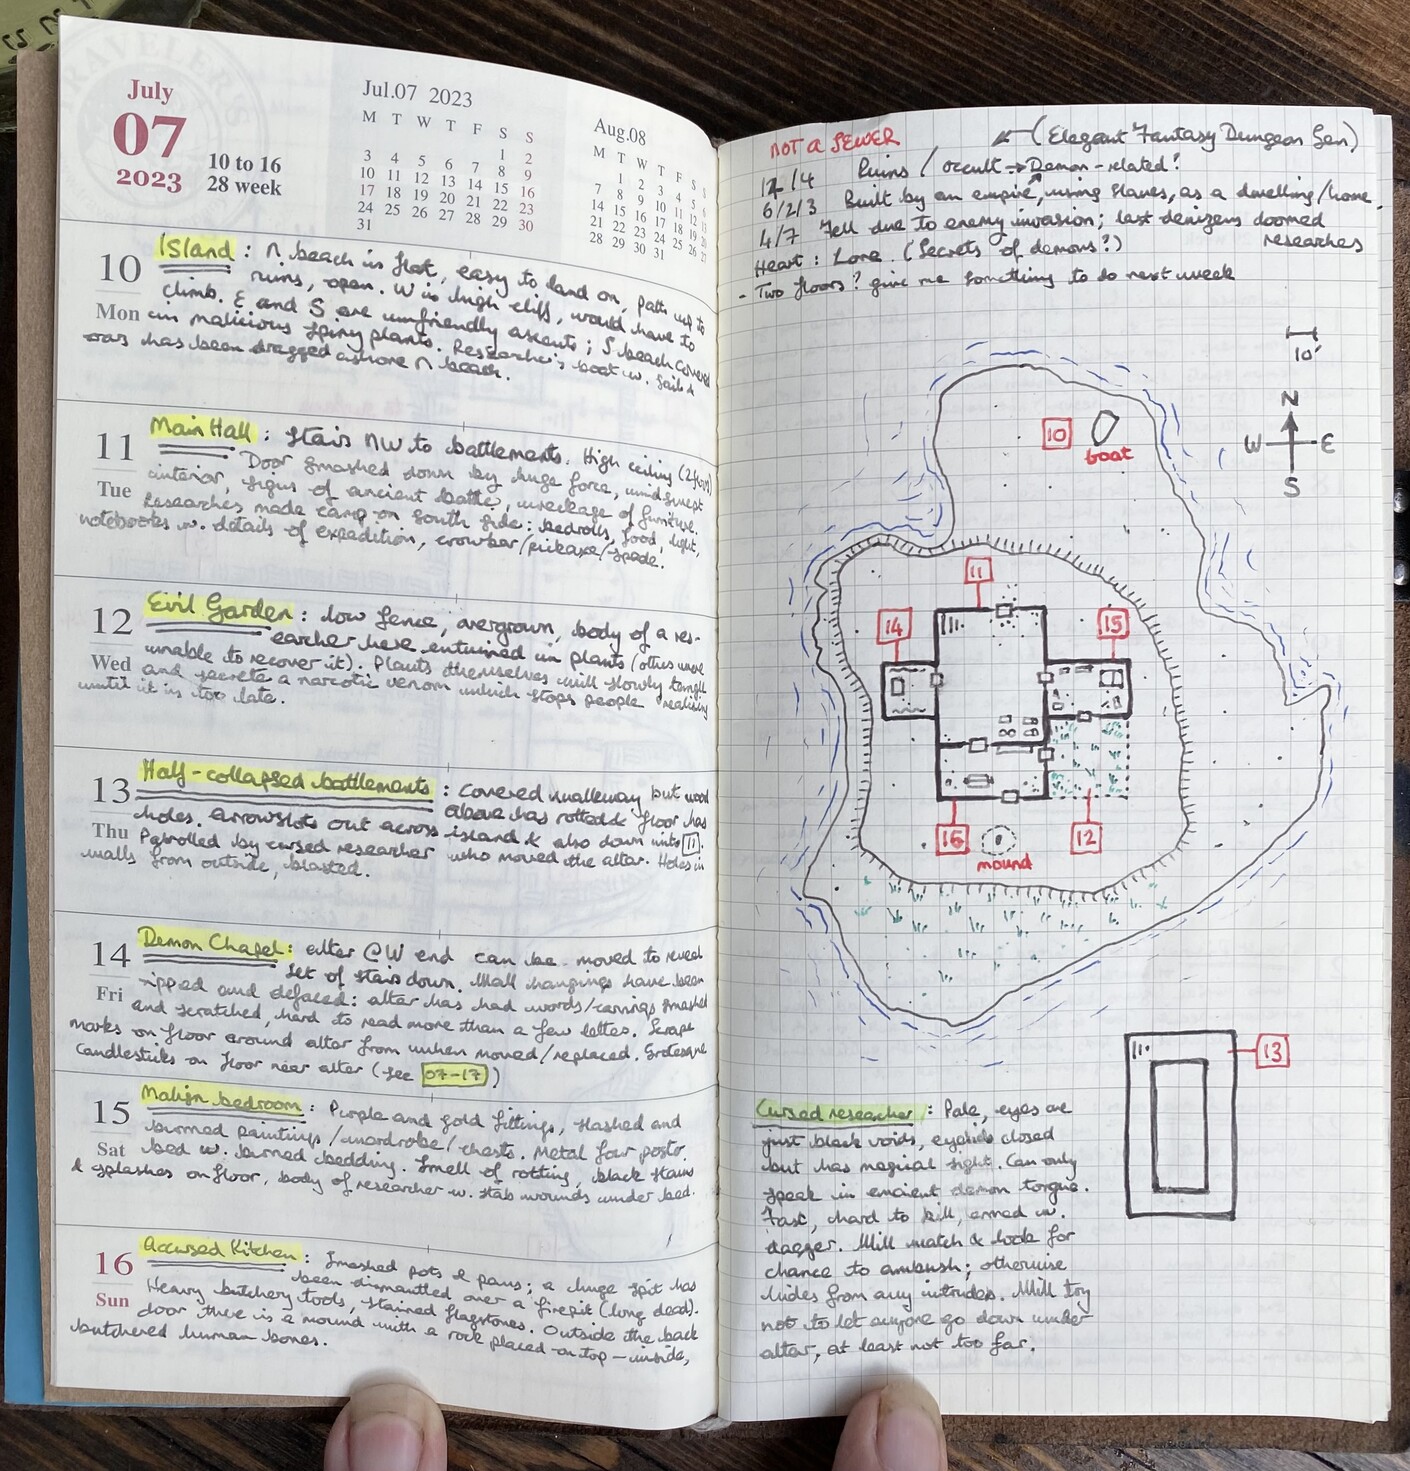 TRAVELER'S
July
07
2023
10 to 16
28 week
Jul.07 2023
M T W T F S S
1 2
3 4 5 6 7 8 9
10 11 12 13 14 15 16
17 18 19 20 21 22 23
24 25 26 27 28 29 30
31
Aug.08
M T W T F S S
1 2 3 4 5 6
7 8 9 10 11 12 13
14 15 16 17 18 19 20
21 22 23 24 25 26 27
28 29 30 31
10
Mon
Island : N. beach is flat, easy to land on, path up to
ruins, open. W is high cliff, would have to
climb. E and S are unfriendly ascents; S beach covered
in malicious spiny plants. Researcher's boat w. sail &
oars has been dragged ashore N beach.
11
Tue
Main Hall : Stairs NW to battlements. High ceiling (2 floors)
Door smashed down by huge force, windswept
interior, signs of ancient battle, wreckage of furniture.
Researchers made camp on South side: bedrolls, food, light,
notebooks w. details of expedition, crowbar/pickaxe/spade.
12
Wed
Evil Garden : low fence, overgrown, body of a res-
earcher here entwined in plants (others were
unable to recover it). Plants themselves will slowly tangle
and secrete a narcotic venom which stops people realising
until it is too late.
13
Thu
Half-collapsed battlements : covered walkway but wood
above has rotted & floor has
holes. Arrowslots out across island & also down into 11.
Patrolled by cursed researcher who moved the altar. Holes in
walls from outside, blasted.
14
Fri
Demon Chapel: alter @ W end can be moved to reveal
set of stairs down. Wall hangings have been
ripped and defaced: altar has had words/carvings smashed
and scratched, hard to read more than a few letters. Scrape
marks on floor around altar from when moved/replaced. Grotesque
Candlesticks on floor near alter (see 07-17)
15
Sat
Malign bedroom : Purple and gold fittings, slashed and
burned paintings/wardrobe/chests. Metal four poster
bed w. burned bedding. Smell of rotting, black stains
& splashes on floor, body of researcher w. stab wounds under bed.
16
Sun
Accursed Kitchen : Smashed pots & pans; a huge spit has
been dismantled over a firepit (long dead).
Heavy butchery tools, stained flagstones. Outside the back
door there is a mound with a rock placed on top – inside,
butchered human bones.
NOT A SEWER
(Elegant Fantasy Dungeon Gen)
12/4 Ruins / occult → Demon-related?
6/2/3 Built by an empire, using slaves, as a dwelling/home.
4/7 Fell due to enemy invasion; last denizens doomed
researches
Heart : Lore. (Secrets of demons?)
- Two floors? give me something to do next week
10'
N
W E
S
10
boat
11
14
15
16
mound
12
13
Cursed researcher : Pale, eyes are
just black voids, eyelids closed
but has magical sight. Can only
speak in ancient demon tongue.
Fast, hard to kill, armed w.
dagger. Will watch & look for
chance to ambush; otherwise
hides from any intruders. Will try
not to let anyone go down under
altar, at least not too far.